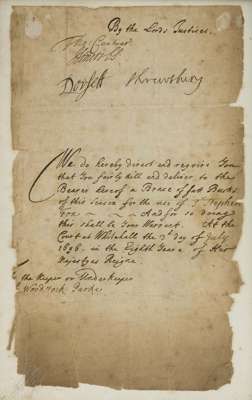 By the Lords Justices.
Tho: Cantuar
Dorsett Shrewsbury
We do hereby direct and require You
that You fairly kill and deliver to the
Bearer hereof a Brace of fatt Bucks
of this Season for the use of Sr Stephen
Fox ~ ~ ~ And for so doeing
this shall be Your Warrant. At the
Court at Whitehall the day of July
1696. in the Eighth Yeare of His
Majestyes Reigne.
the Keeper or Underkeeper
Woodstock Parke.